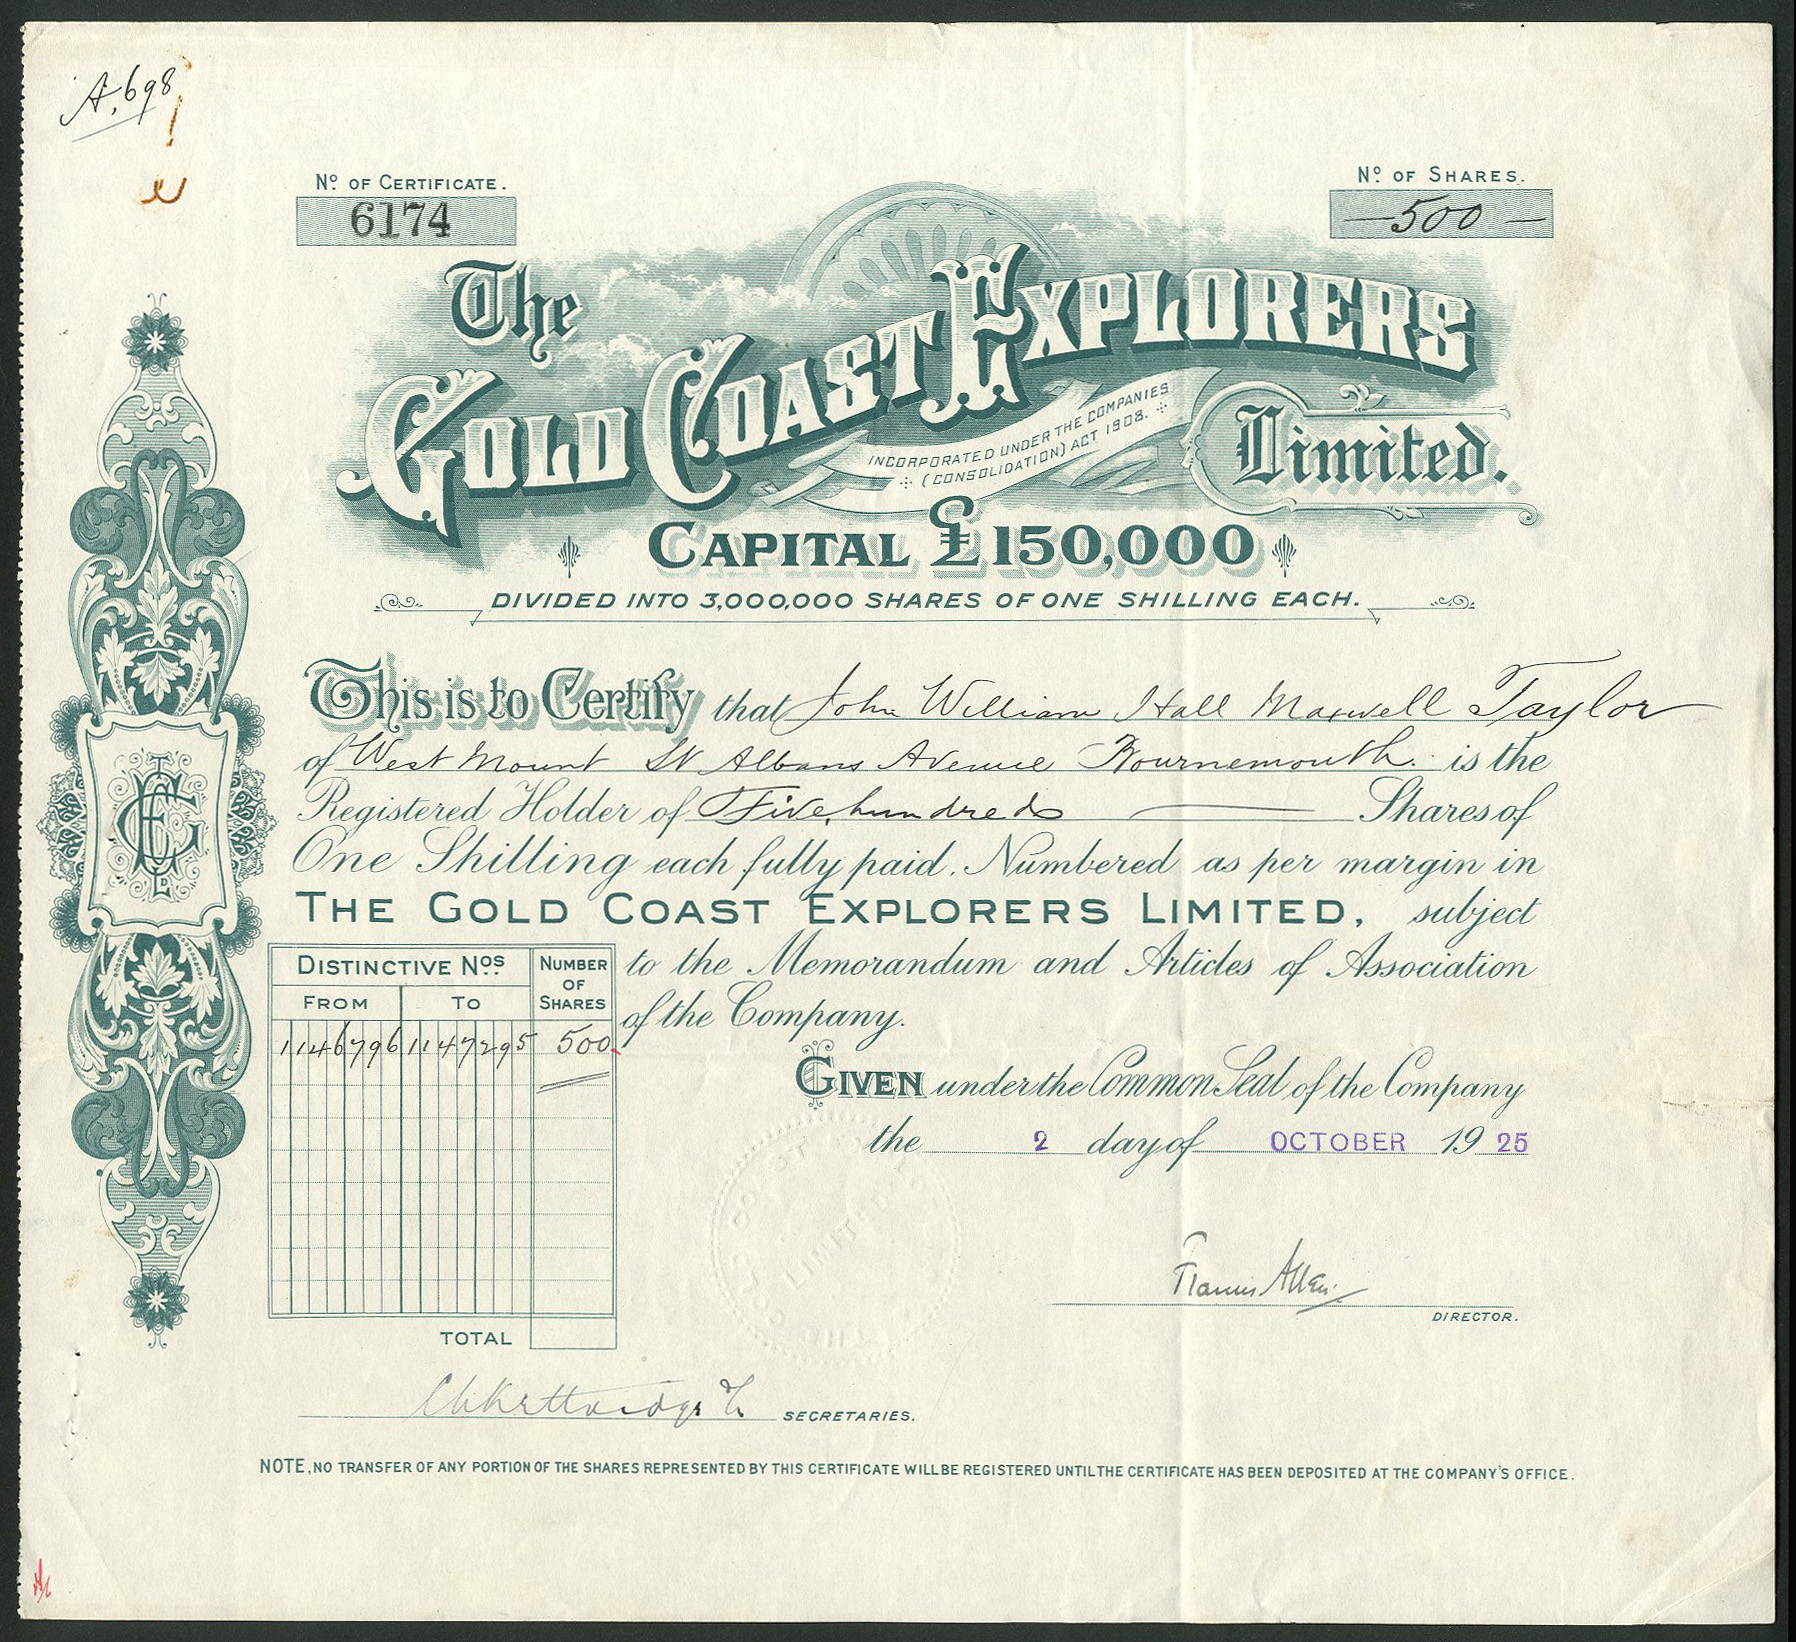 A.698
No. OF CERTIFICATE.
6174
No. OF SHARES.
— 500 —
The
GOLD COAST EXPLORERS
Limited.
INCORPORATED UNDER THE COMPANIES
(CONSOLIDATION) ACT 1908.
CAPITAL £150,000
DIVIDED INTO 3,000,000 SHARES OF ONE SHILLING EACH.
This is to Certify that John William Hall Maxwell Taylor
of West Mount St Albans Avenue Bournemouth. is the
Registered Holder of Five hundred Shares of
One Shilling each fully paid. Numbered as per margin in
THE GOLD COAST EXPLORERS LIMITED, subject
to the Memorandum and Articles of Association
of the Company.
DISTINCTIVE Nos.
NUMBER OF SHARES
FROM
TO
1146796 1147295 500
TOTAL
GIVEN under the Common Seal of the Company
the 2 day of OCTOBER 1925
Francis Allen
DIRECTOR.
SECRETARIES.
NOTE, NO TRANSFER OF ANY PORTION OF THE SHARES REPRESENTED BY THIS CERTIFICATE WILL BE REGISTERED UNTIL THE CERTIFICATE HAS BEEN DEPOSITED AT THE COMPANY'S OFFICE.